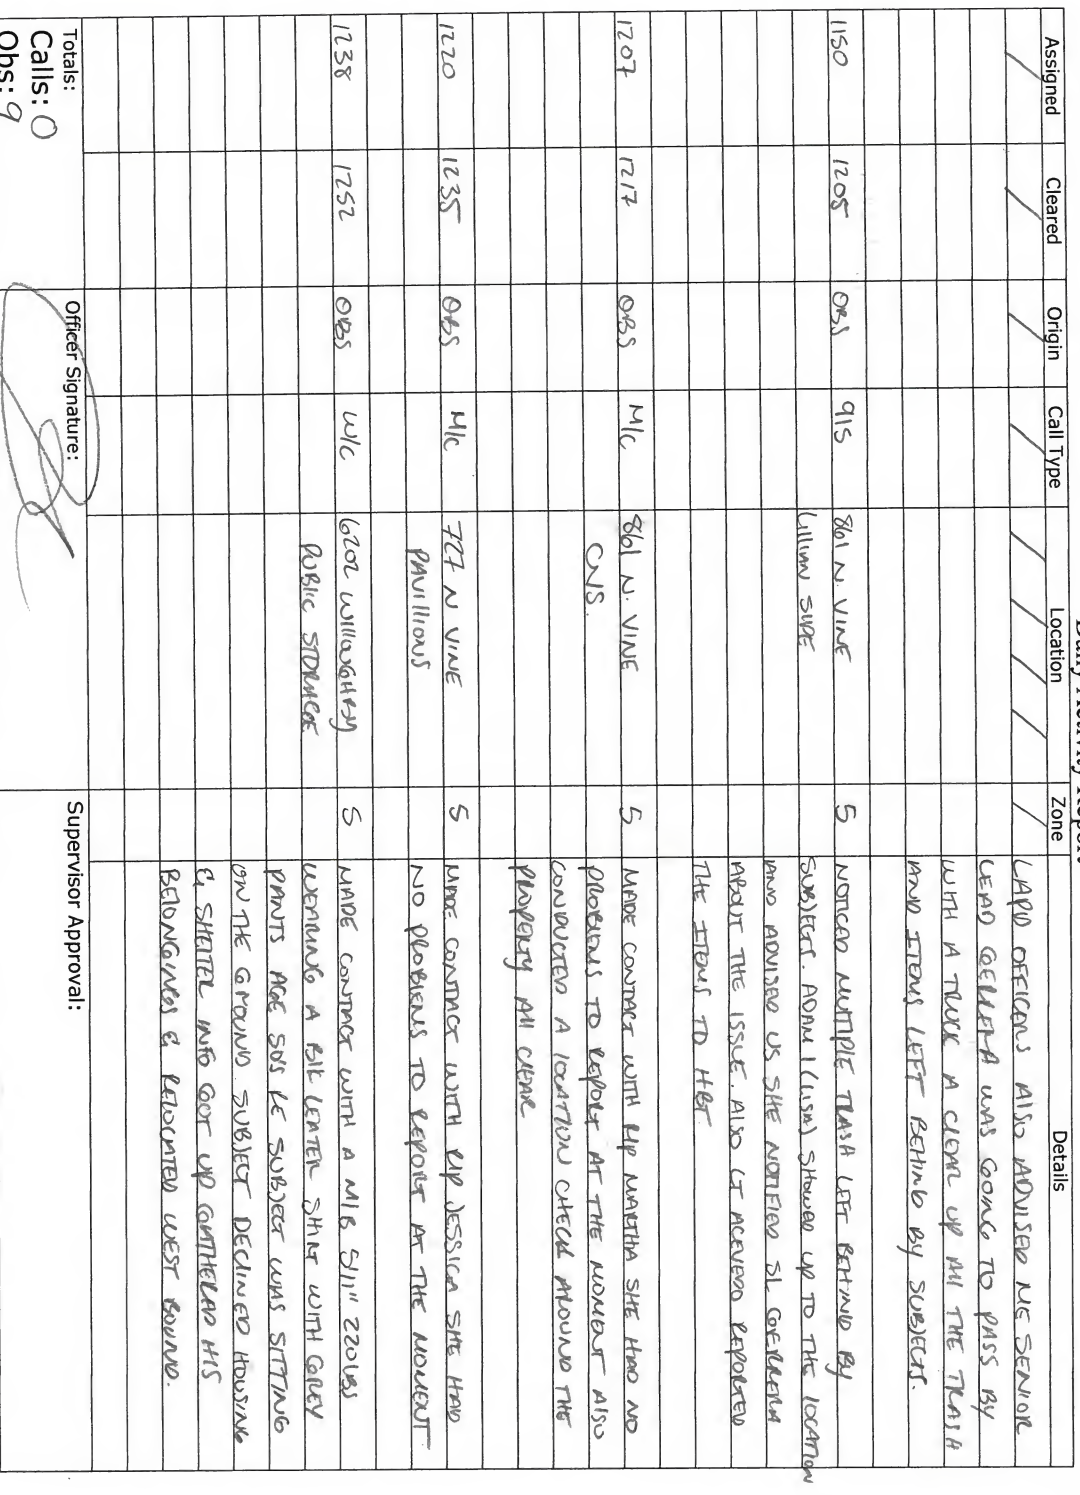 Daily Activity Report
Assigned Cleared Origin Call Type Location Zone Details
LAPD OFFICERS ALSO ADVISED ME SENIOR
LEAD GERRERA WAS GOING TO PASS BY
WITH A TRUCK A CLEAR UP All THE TRASH
AND ITEMS LEFT BEHIND BY SUBJECTS.
1150 1205 OBS 915 861 N. VINE 5 NOTICED MUTIPLE TRASH LEFT BEHIND BY
Lillian SIDE SUBJECTS. ADAM 1 (LISA) SHOWED UP TO THE LOCATION
AND ADVISED US SHE NOTIFIED SL GERRERA
ABOUT THE ISSUE. ALSO LT ACEVEDO REPORTED
THE ITEMS TO HBT.
1207 1217 OBS M/C 861 N. VINE 5 MADE CONTACT WITH MARTHA SHE HAD NO
CNS. PROBLEMS TO REPORT AT THE MOMENT ALSO
CONDUCTED A LOCATION CHECK AROUND THE
PROPERTY All CLEAR
1220 1235 OBS M/C 727 N VINE 5 MADE CONTACT WITH JESSICA SHE HAD
PAVILLIONS NO PROBLEMS TO REPORT AT THE MOMENT
1238 1252 OBS W/C 6202 WILLOUGHBY 5 MADE CONTACT WITH A M/B 5/11" 220LBS
PUBLIC STORAGE WEARING A BLK LEATER SHIRT WITH GREY
PANTS AGE 50'S SUBJECT WAS SITTING
ON THE GROUND. SUBJECT DECLINED HOUSING
& SHELTER INFO GOT UP GATHERED HIS
BELONGINGS & RELOCATED WEST BOUND.
Totals:
Calls: 0
Obs: 9
Officer Signature:
Supervisor Approval: